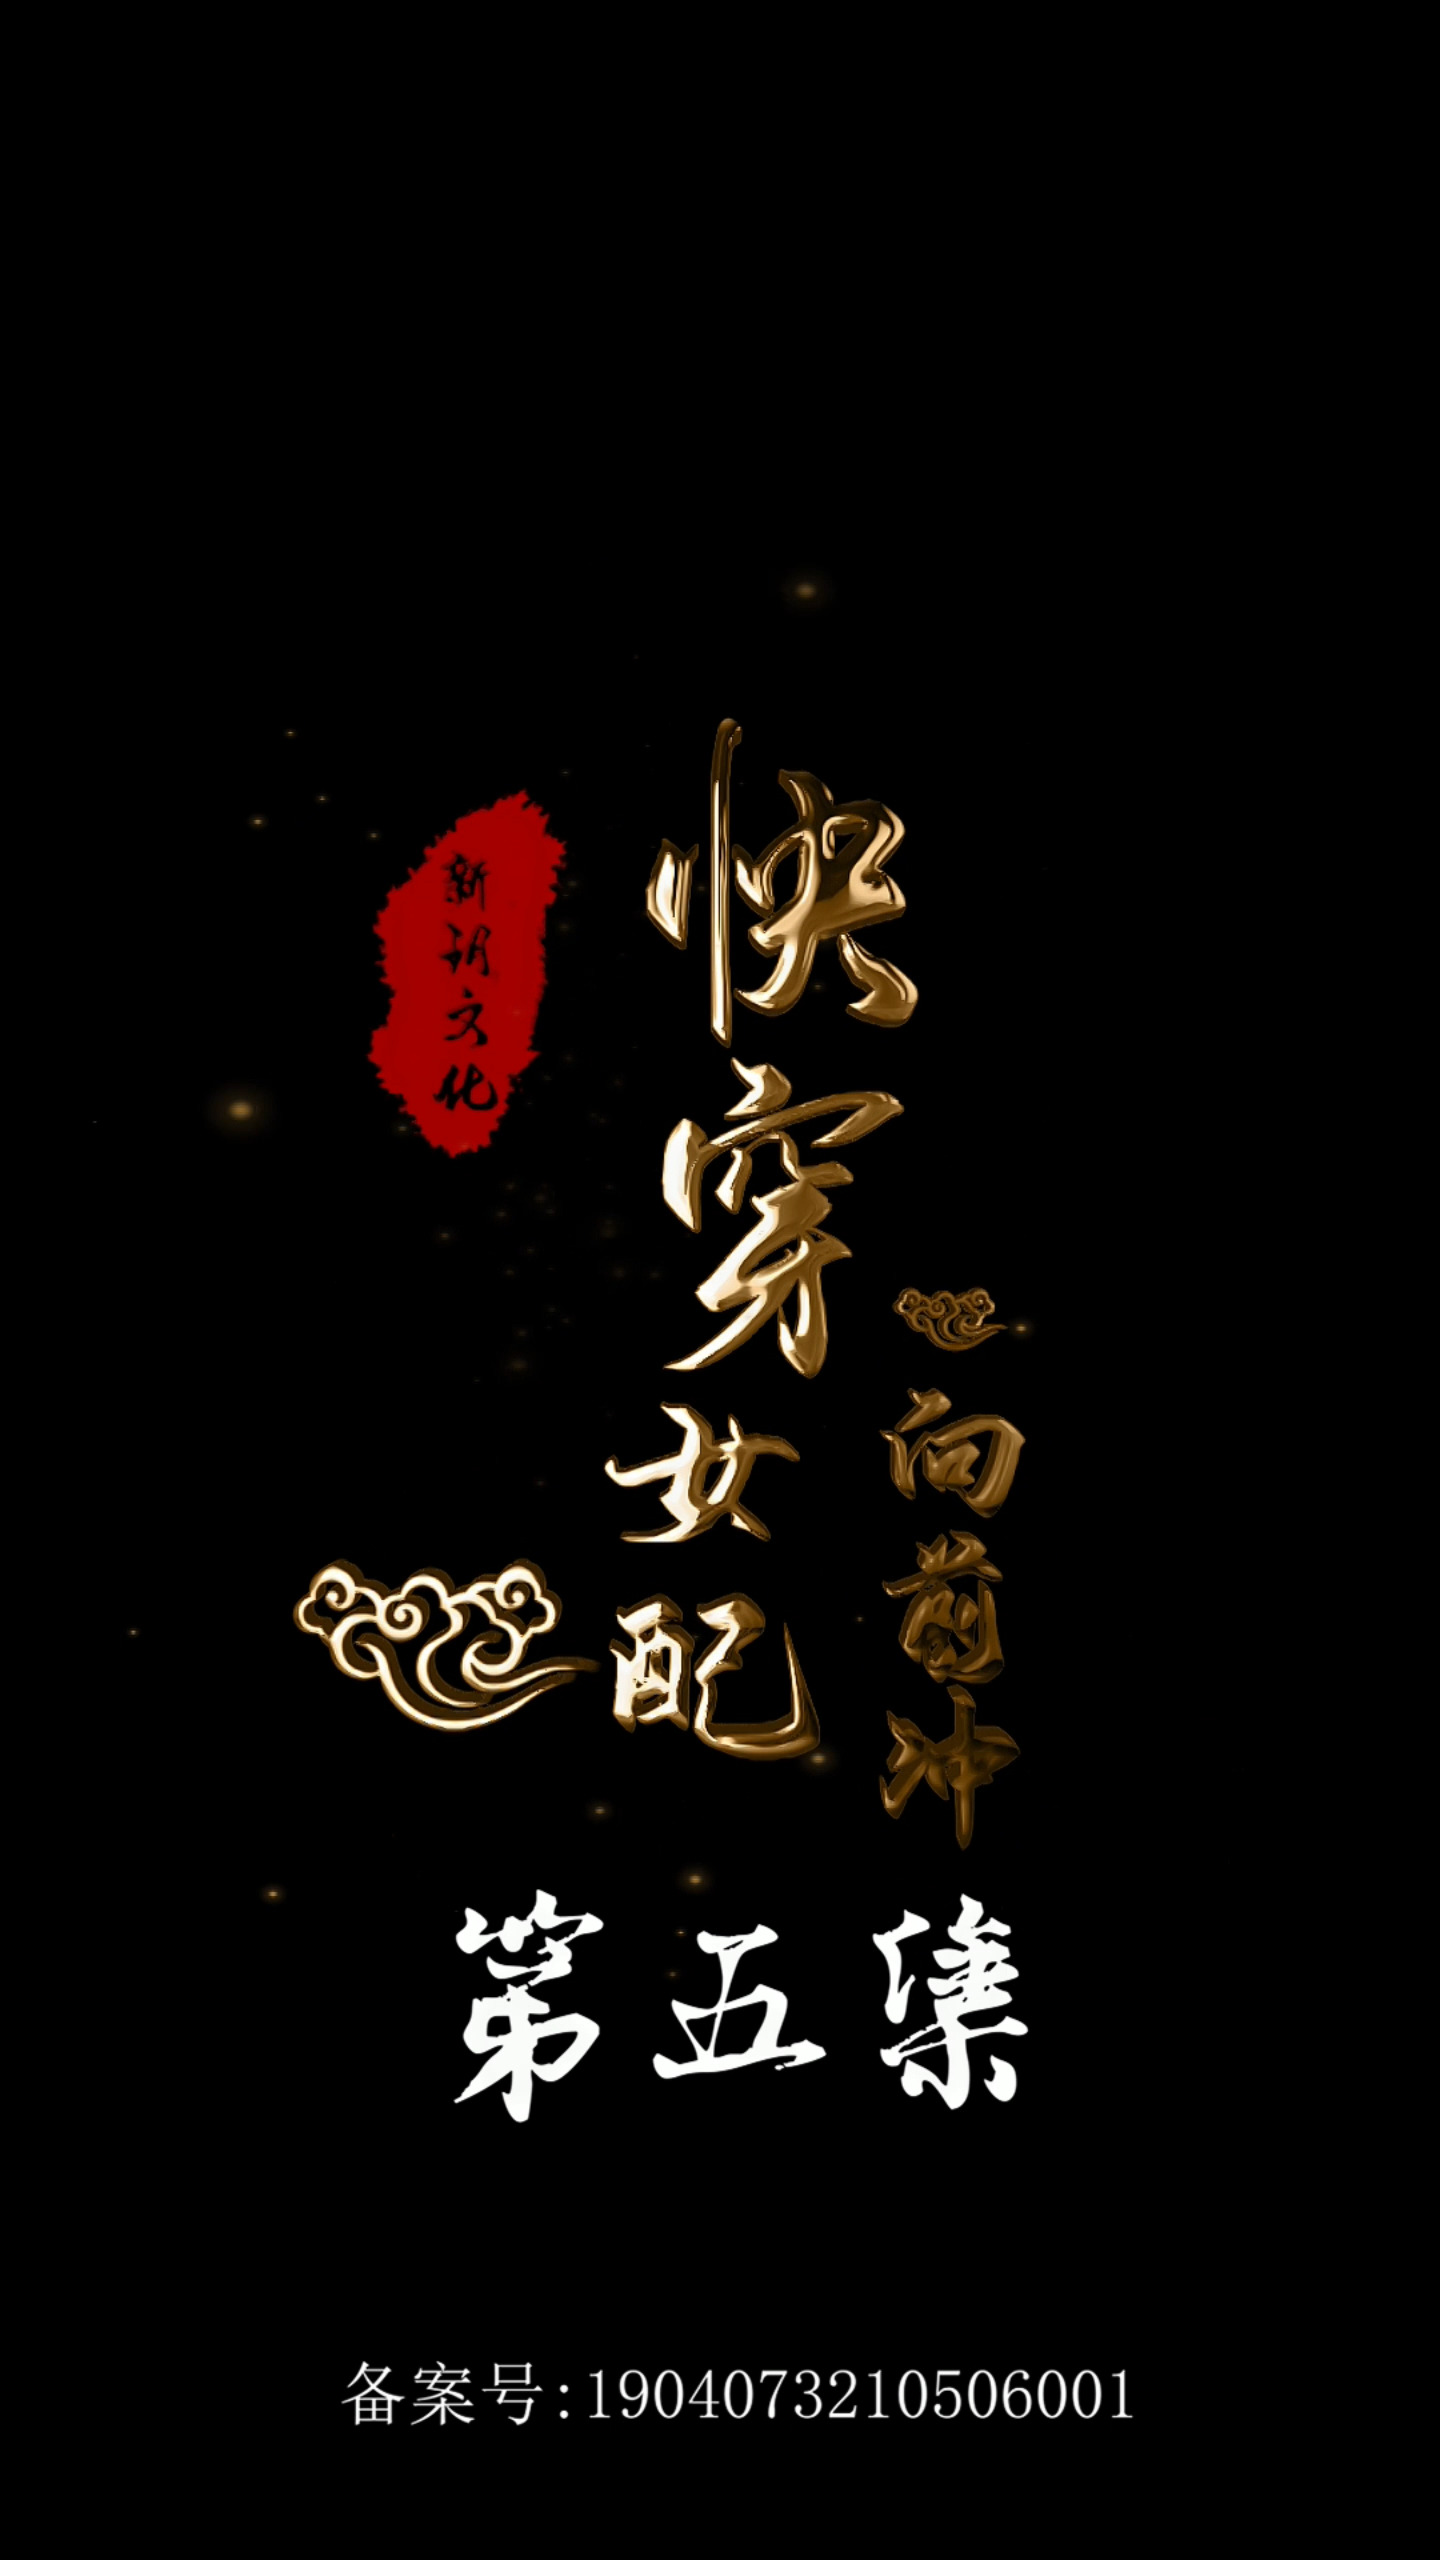 快穿女配
向前冲
新玥文化
第五集
备案号:1904073210506001